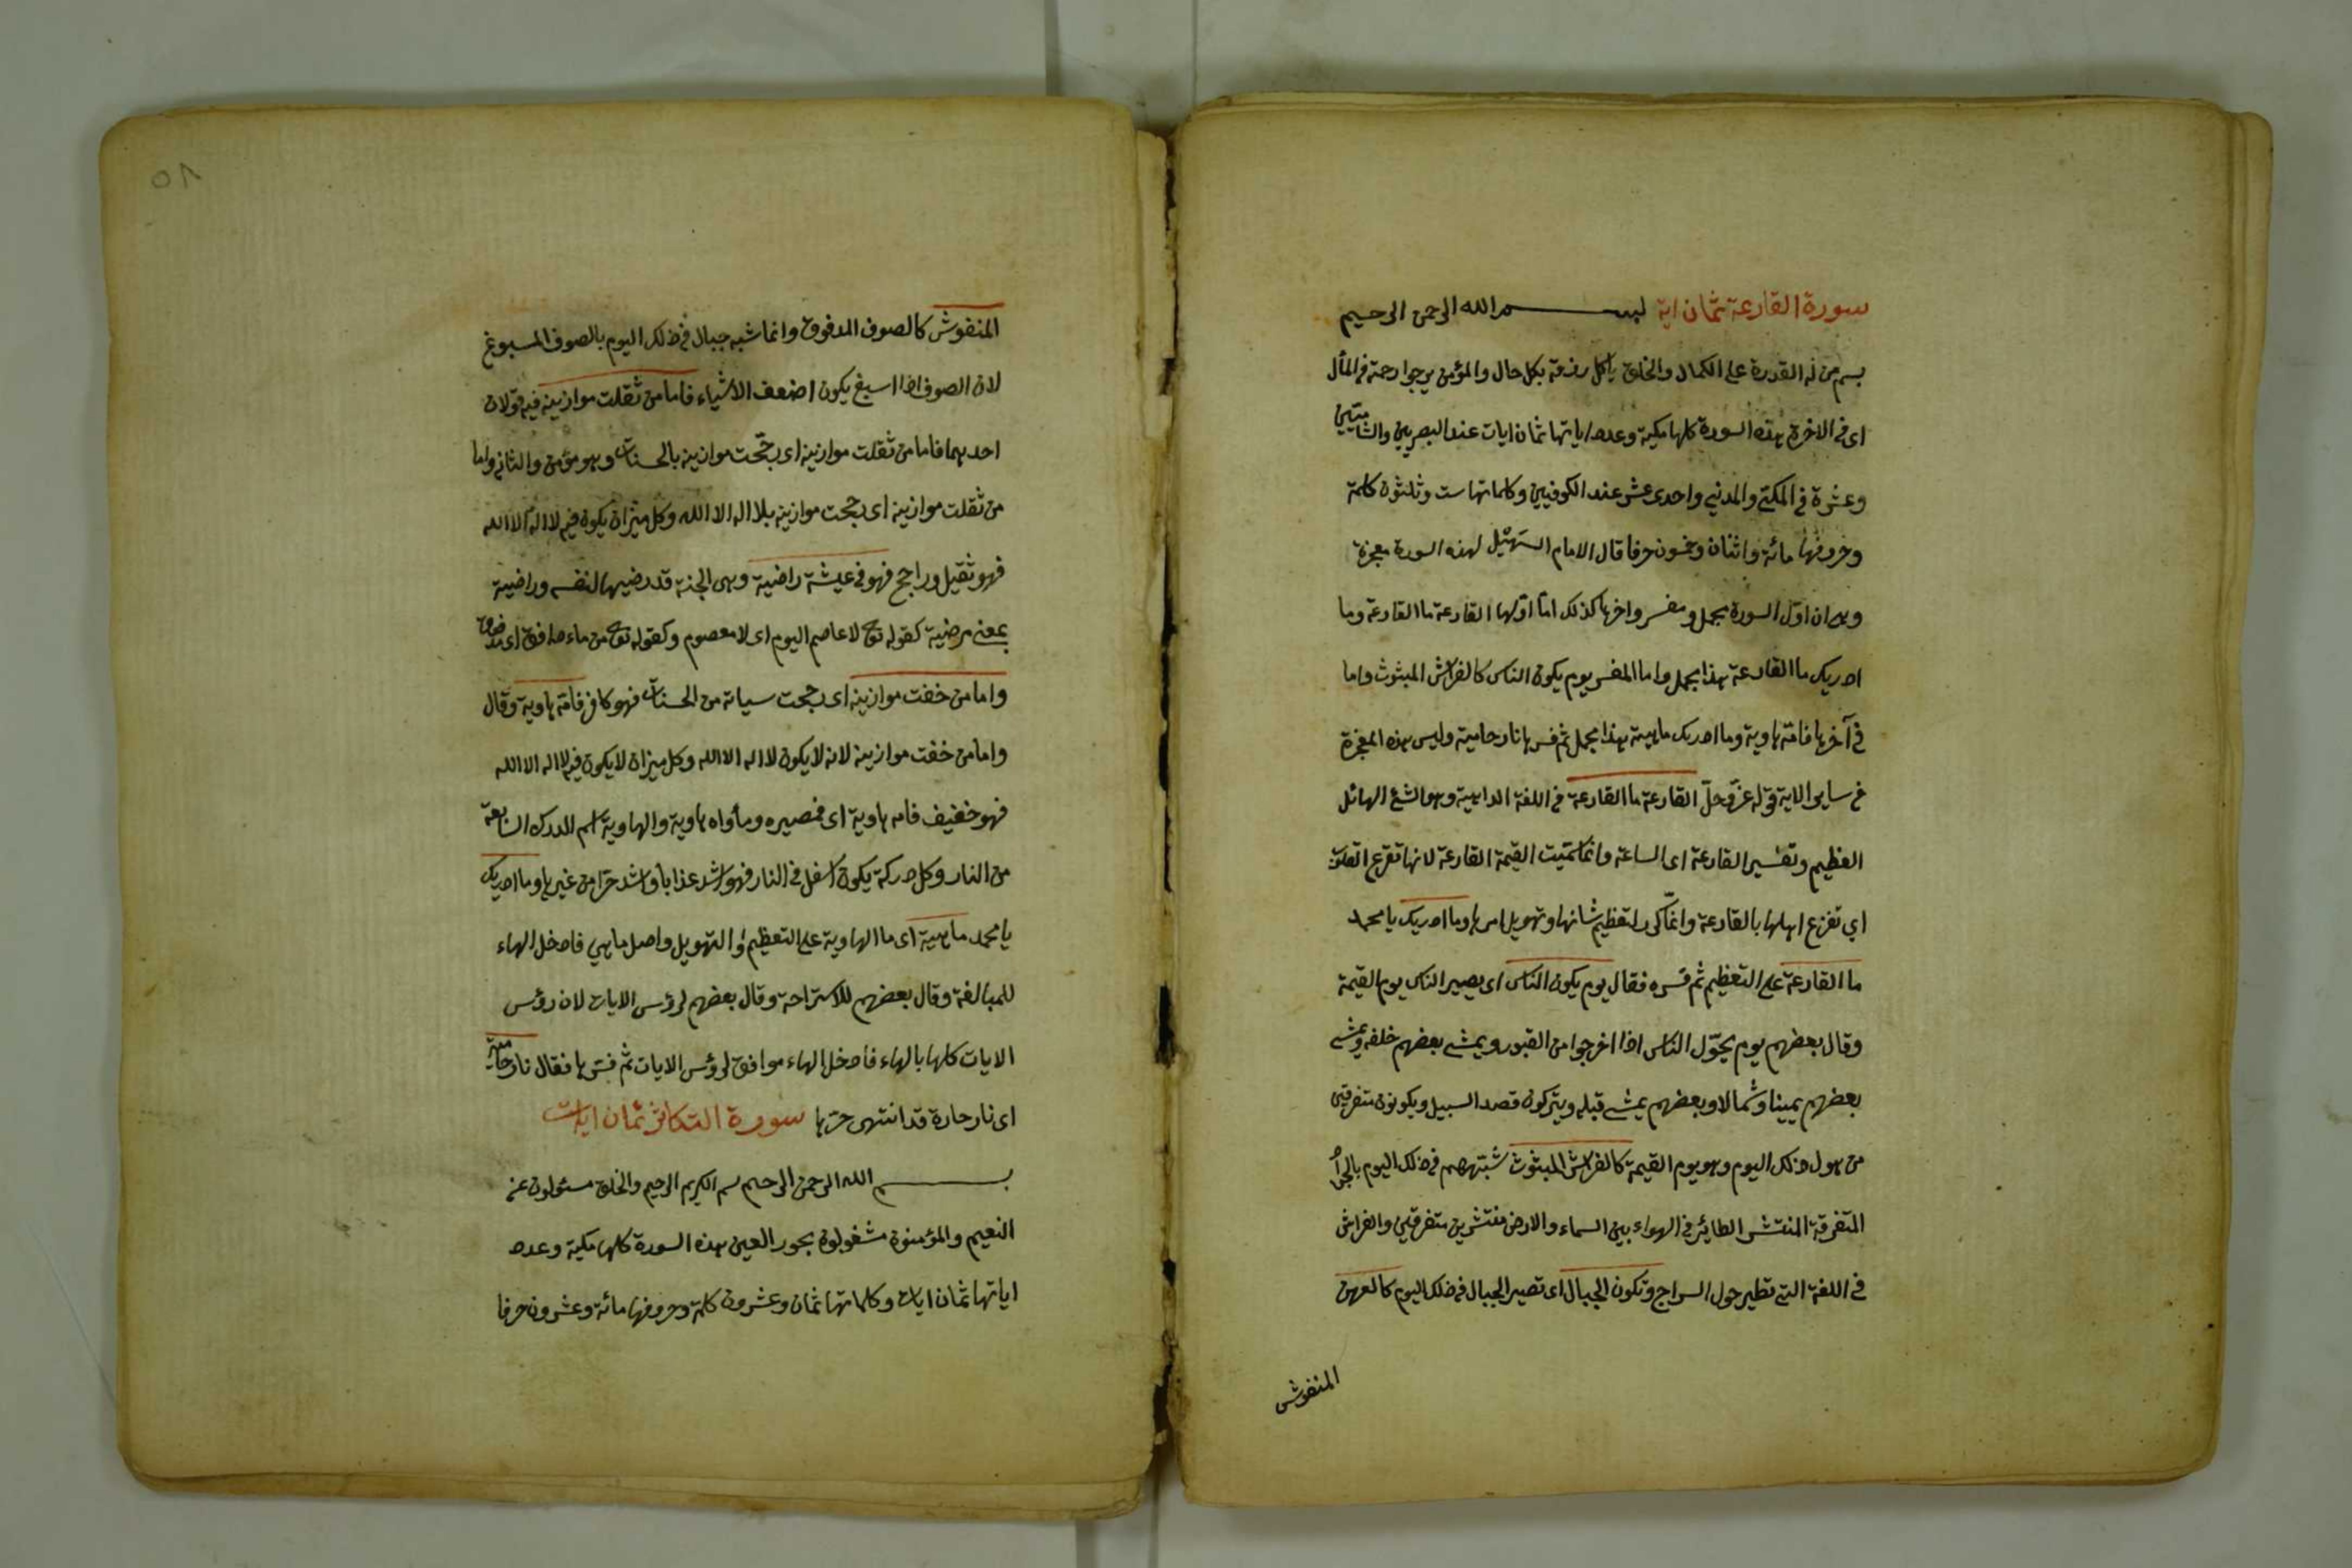 سورة القارعة ثمان اية بسم الله الرحمن الرحيم
بسم من له القدرة على الكمال والخلق ياكل رزقه بكل حال والمؤمن يرجوا رحمة في المأل
اى في الاخرة هذه السورة كلها مكية وعدد اياتها ثمان ايات عند البصريين والشاميين
وعشرة في المكي والمدني واحدى عشر عند الكوفيين وكلماتها ست وثلثون كلمة
وحروفها مائة واثنان وخمسون حرفا قال الامام لهذه السورة معجزة
وهى ان اول السورة مجمل ومفسر واخرها كذلك اما اولها القارعة ما القارعة وما
ادريك ما القارعة هذا مجمل واما المفسر يوم يكون الناس كالفراش المبثوث واما
في آخرها فامه هاوية وما ادريك ماهية هذا مجمل ثم فسرها نار حامية وليس هذه المعجزة
في ساير الاية قوله عز وجل القارعة ما القارعة في اللغة الداهية وهو الشئ الهائل
العظيم وتفسير القارعة اى الساعة وانما سميت القيمة القارعة لانها تقرع القلوب
اي تفزع اهلها بالقارعة وانما كرر لتعظيم شانها وتهويل امرها وما ادريك يا محمد
ما القارعة على التعظيم ثم فسره فقال يوم يكون الناس اى يصير الناس يوم القيمة
وقال بعضهم يوم يحول الناس اذا اخرجوا من القبور ويمشي بعضهم خلفه ويمشي
بعضهم يمينا وشمالا وبعضهم يمشي قبله ويتركون قصد السبيل ويكونون متفرقين
من هول ذلك اليوم وهو يوم القيمة كالفراش المبثوث شبههم في ذلك اليوم بالجراد
المتفرقة المنتشر الطائر في الهواء بين السماء والارض منتشرين متفرقين والفراش
في اللغة التي تطير حول السراج وتكون الجبال اى تصير الجبال في ذلك اليوم كالعهن
المنفوش
٥٨
المنفوش كالصوف المدفوق وانما شبه جبال في ذلك اليوم بالصوف المسبوغ
لان الصوف اذا اسبغ يكون اضعف الاشياء فاما من ثقلت موازينه فيه قولان
احدهما فاما من ثقلت موازينه اى رجحت موازينه بالحسنات وهو مؤمن والثاني واما
من ثقلت موازينه اى رجحت موازينه بلا اله الا الله وكل ميزان يكون فيه لا اله الا الله
فهو ثقيل وراجح فهو في عيشة راضية وهى الجنة قد رضيها لنفسه وراضية
بمعنى مرضية كقوله تع لا عاصم اليوم اى لا معصوم وكقوله تع من ماء دافق اى مدفوق
واما من خفت موازينه اى رجحت سياته من الحسنات فهو كافر فامه هاوية وقال
واما من خفت موازينه لانه لا يكون لا اله الا الله وكل ميزان لا يكون فيه لا اله الا الله
فهو خفيف فامه هاوية اى فمصيره ومأواه هاوية والهاوية اسم للدرك السابعة
من النار وكل دركة يكون اسفل في النار فهو اشد عذابا واشد حرا من غيرها وما ادريك
يا محمد ماهية اى ما الهاوية على التعظيم والتهويل واصل ما هي فادخل الهاء
للمبالغة وقال بعضهم للاستراحة وقال بعضهم لرؤس الايات لان رؤس
الايات كلها بالهاء فادخل الهاء موافق لرؤس الايات ثم فسرها فقال نار حامية
اى نار حارة قد انتهى حرها سورة التكاثر ثمان ايات
بسم الله الرحمن الرحيم بسم الكريم الرحيم والخلق مسئولون عن
النعيم والمؤمنون مشغولون بحور العين هذه السورة كلها مكية وعدد
اياتها ثمان ايات وكلماتها ثمان وعشرون كلمة وحروفها مائة وعشرون حرفا